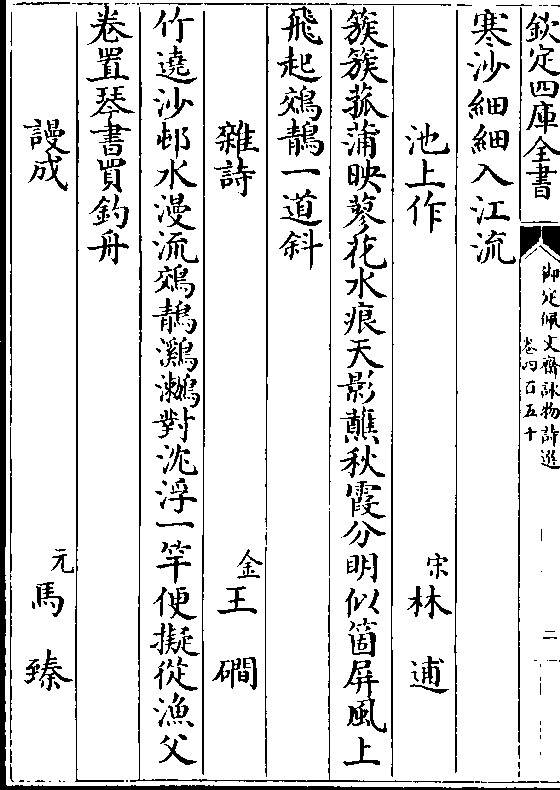 欽定四庫全書
御定佩文齋詠物詩選
卷四百五十
二
寒沙細細入江流
池上作
宋林逋
簇簇菰蒲映蓼花水痕天影蘸秋霞分明似箇屏風上
飛起鵁鶄一道斜
雜詩
金王磵
竹遶沙邨水漫流鵁鶄鸂鷘對沈浮一竿便擬從漁父
卷置琴書買釣舟
謾成
元馬臻